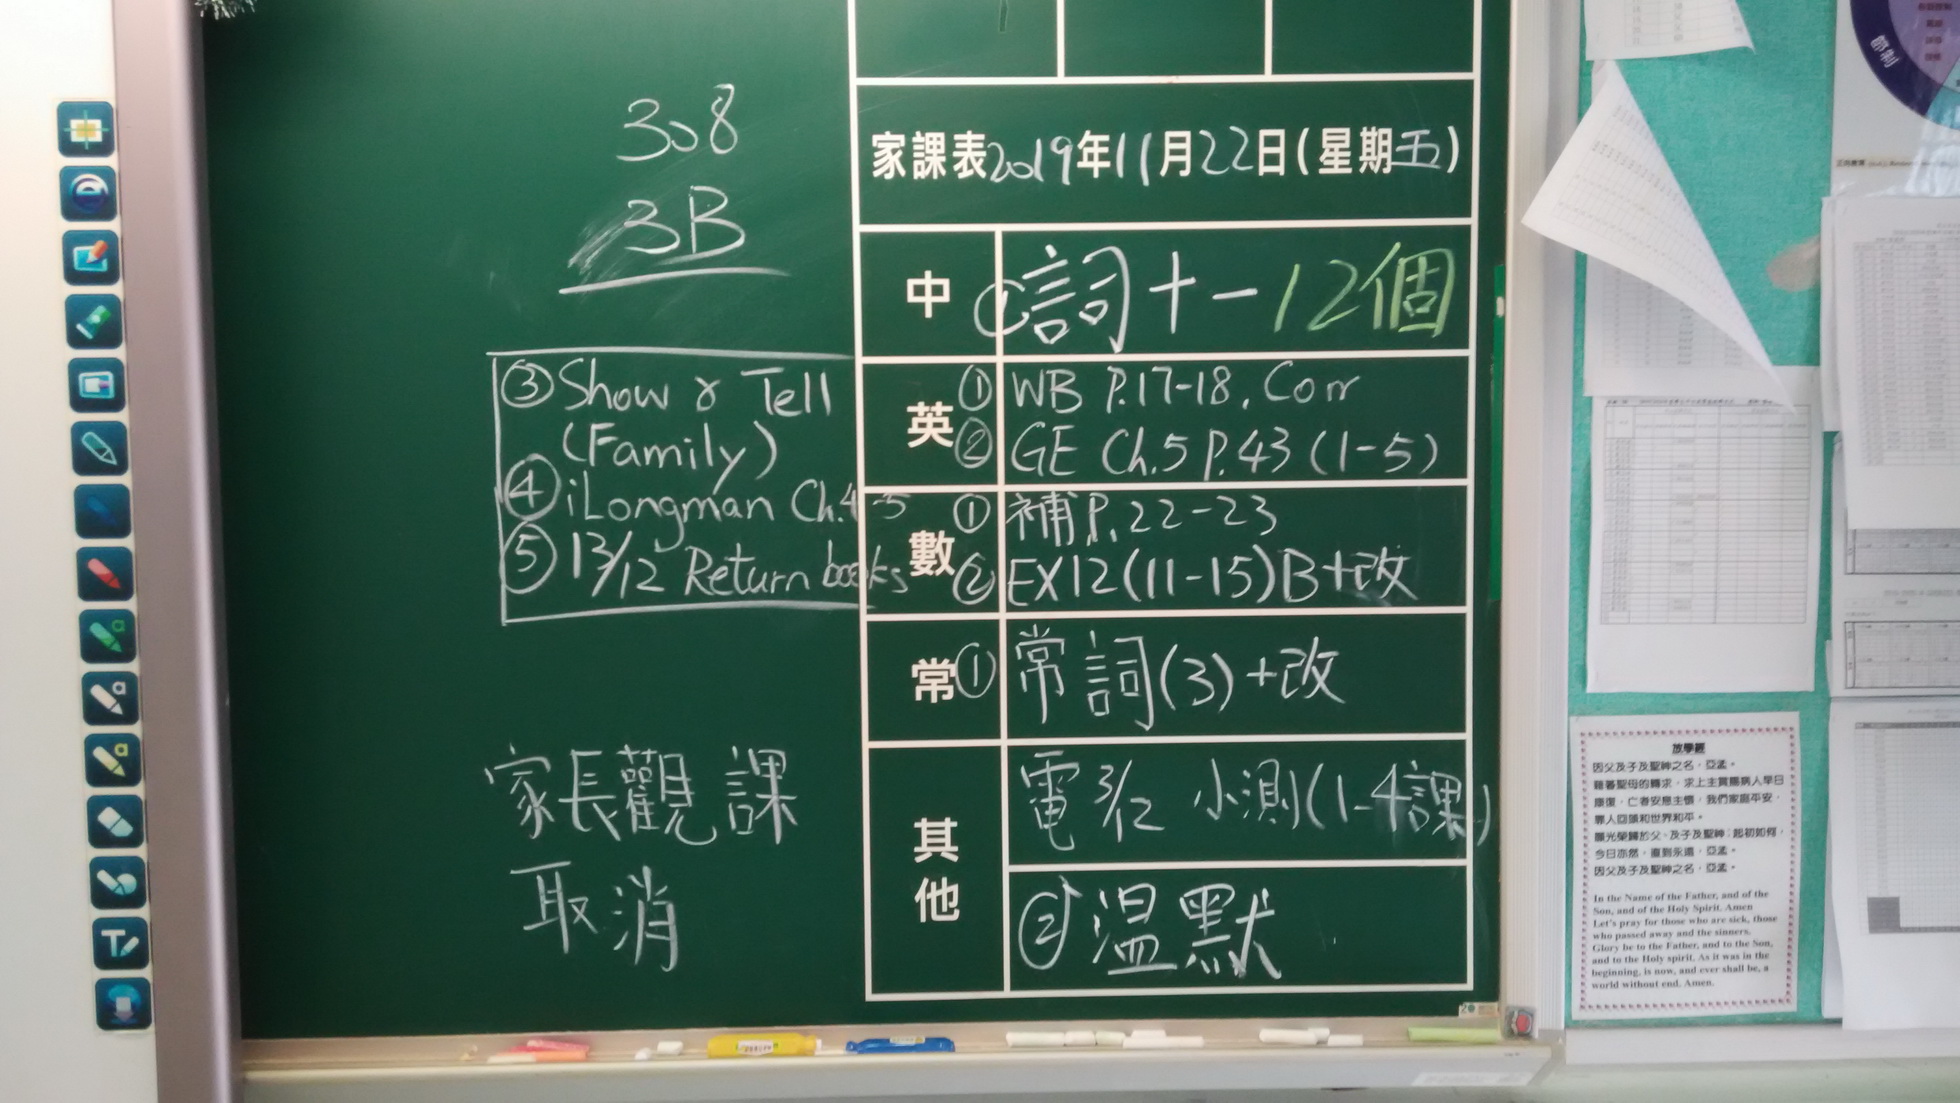 308
3B
③ Show & Tell
(Family)
④ iLongman Ch.4-5
⑤ 13/12 Return books
家長觀課
取消
家課表2019年11月22日(星期五)
中
① 詞十一 12個
英
① WB P.17-18, Corr
② GE Ch.5 P.43 (1-5)
數
① 補P.22-23
② EX12(11-15)B+改
常
① 常詞(3)+改
其他
電 3/12 小測(1-4課)
② 溫默
放學經
因父及子及聖神之名，亞孟。
藉著聖母的轉求，求上主賞賜病人早日
康復，亡者安息主懷，我們家庭平安，
罪人回頭和世界和平。
願光榮歸於父、及子及聖神；起初如何，
今日亦然，直到永遠，亞孟。
因父及子及聖神之名，亞孟。
In the Name of the Father, and of the
Son, and of the Holy Spirit. Amen
Let's pray for those who are sick, those
who passed away and the sinners.
Glory be to the Father, and to the Son,
and to the Holy spirit. As it was in the
beginning, is now, and ever shall be, a
world without end. Amen.